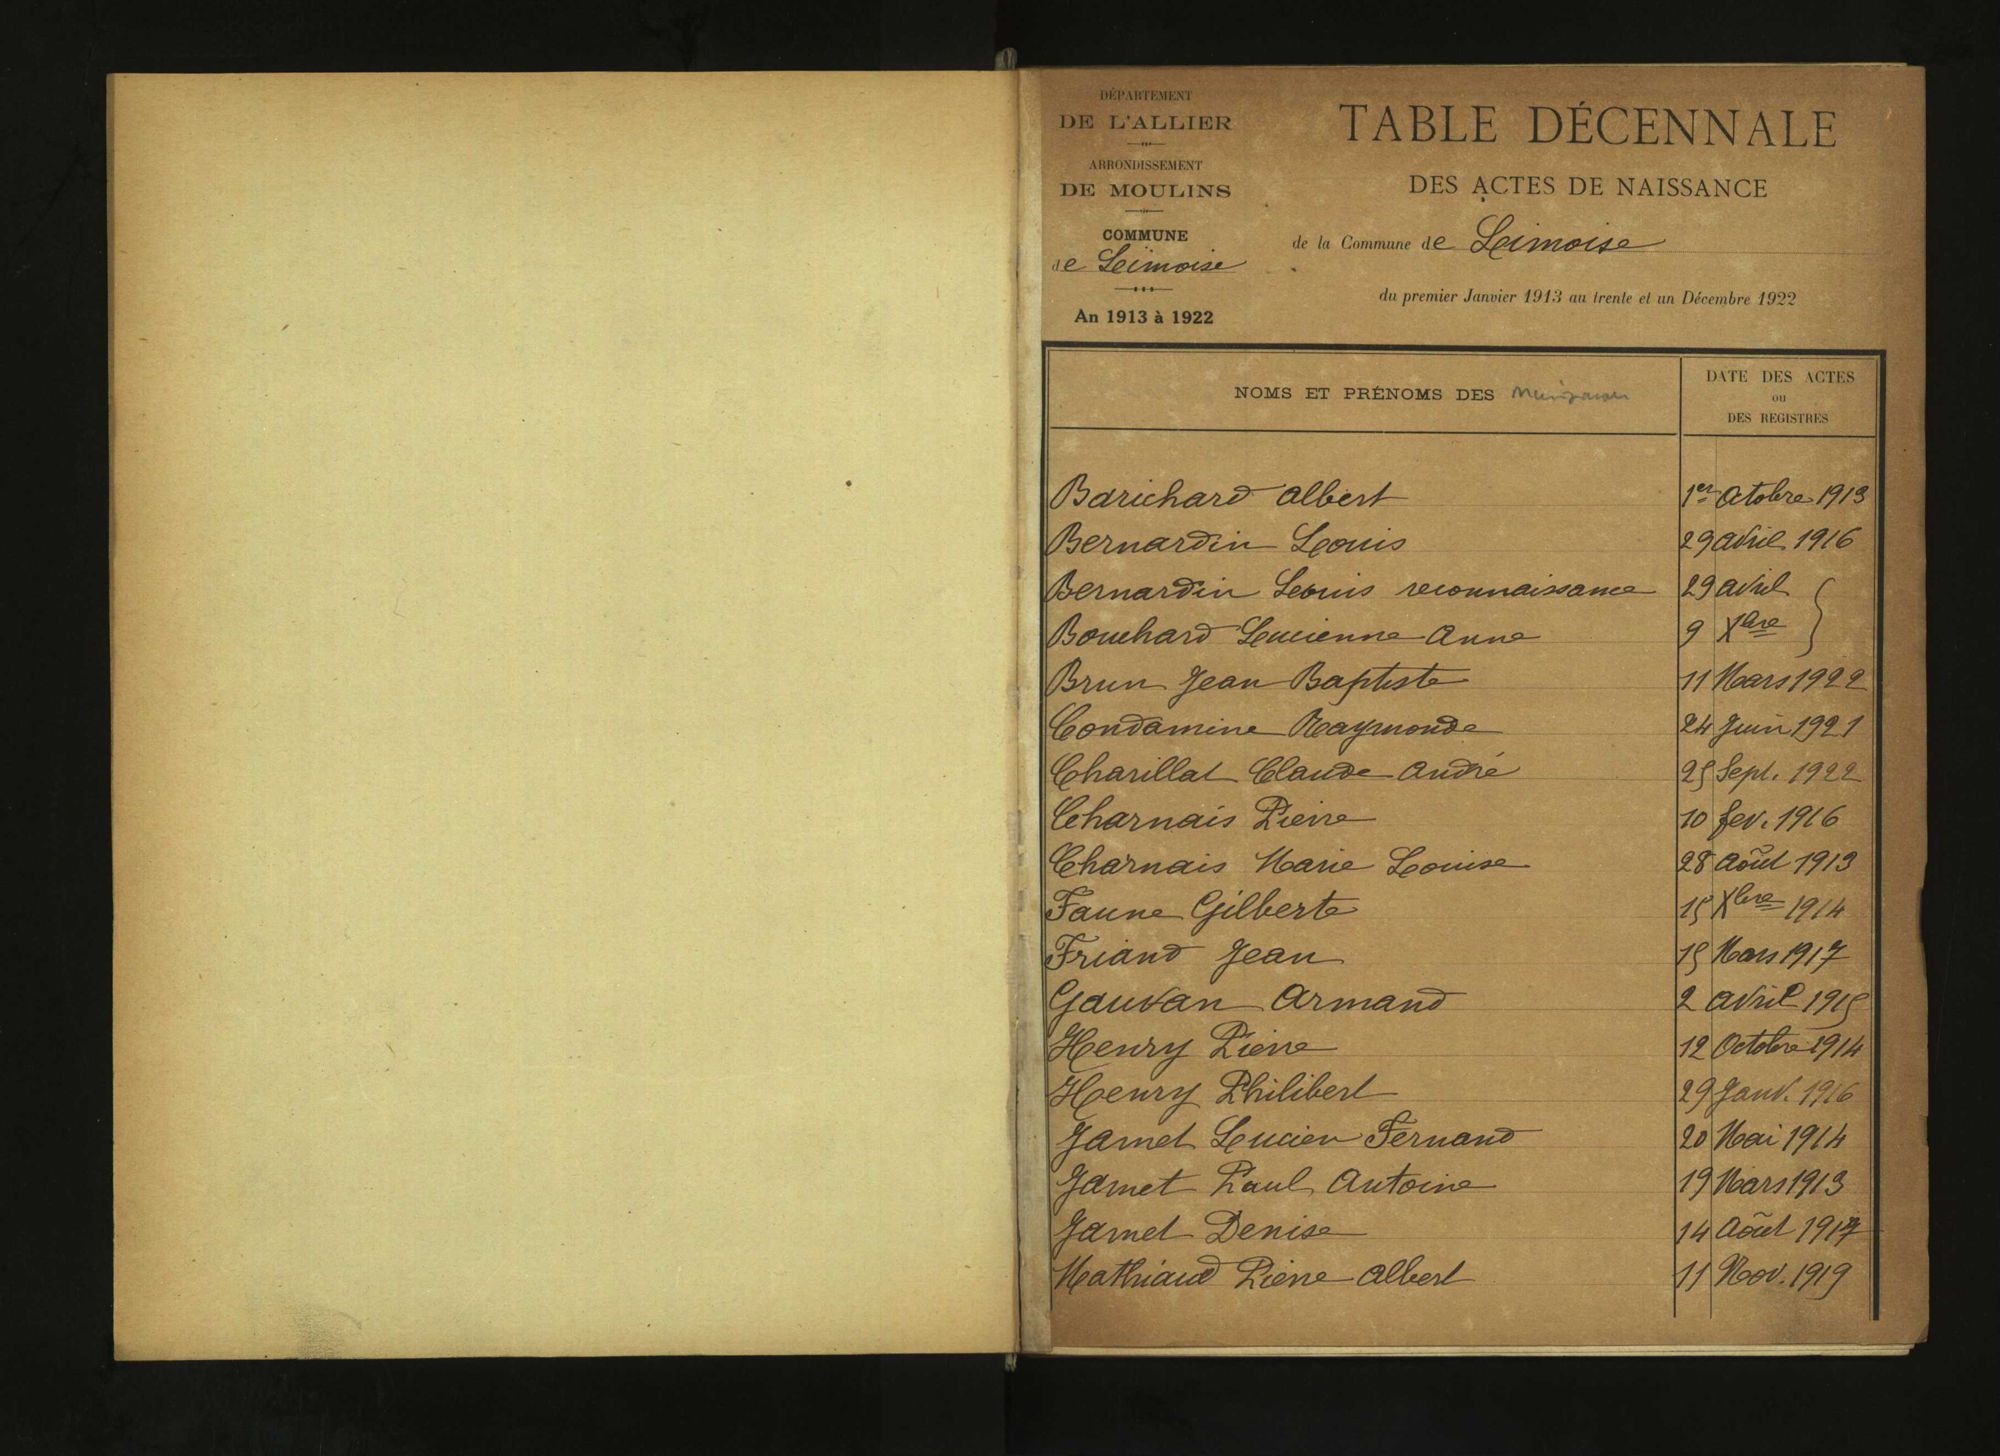 DÉPARTEMENT
DE L'ALLIER
ARRONDISSEMENT
DE MOULINS
COMMUNE
de Limoise
An 1913 à 1922
TABLE DÉCENNALE
DES ACTES DE NAISSANCE
de la Commune de Limoise
du premier Janvier 1913 au trente et un Décembre 1922
NOMS ET PRÉNOMS DES
DATE DES ACTES
OU
DES REGISTRES
Barichard Albert 1er Octobre 1913
Bernardin Louis 29 avril 1916
Bernardin Louis reconnaissance 29 avril
Bouchard Lucienne Anne 9 Xbre
Brun Jean Baptiste 11 Mars 1922
Condamine Raymonde 24 Juin 1921
Charillat Claude André 25 Sept. 1922
Charnais Pierre 10 fev. 1916
Charnais Marie Louise 28 Août 1913
Faune Gilberte 15 Xbre 1914
Friand Jean 15 Mars 1917
Gauvan Armand 2 avril 1915
Henry Pierre 12 Octobre 1914
Henry Philibert 29 Janv. 1916
Jamet Lucien Fernand 20 Mai 1914
Jamet Paul Antoine 19 Mars 1913
Jamet Denise 14 Août 1917
Mathiaud Pierre Albert 11 Nov. 1919